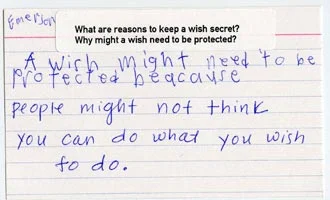 Emerson
What are reasons to keep a wish secret?
Why might a wish need to be protected?
A wish might need to be
protected beacause
people might not think
you can do what you wish
to do.